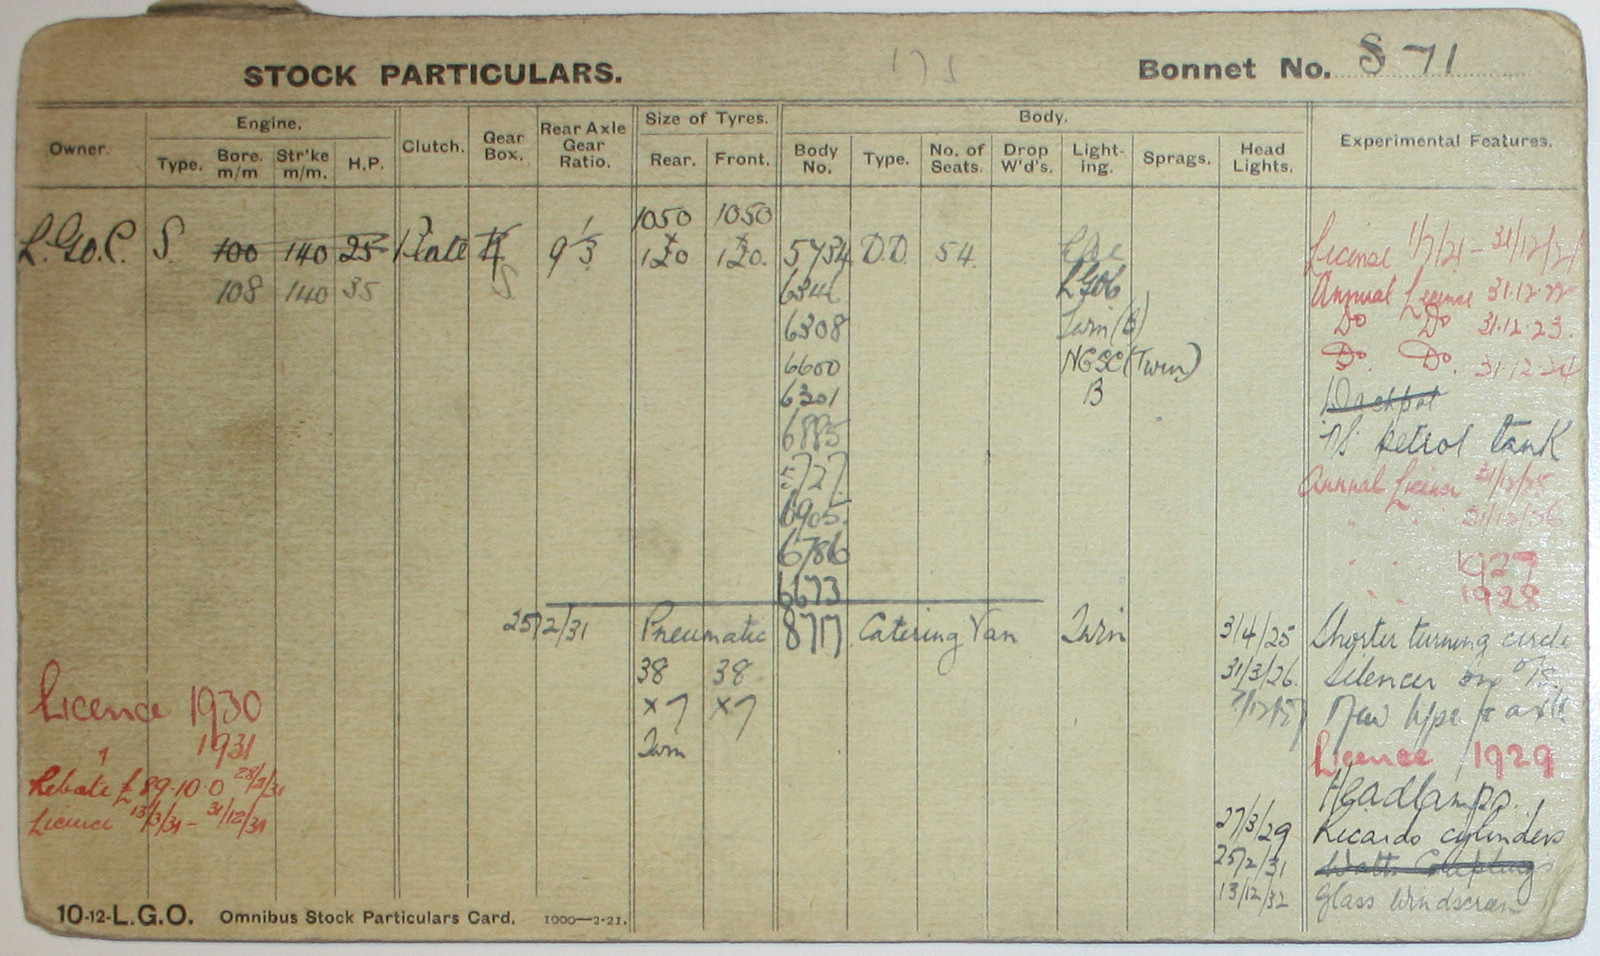 STOCK PARTICULARS.
Bonnet No. S 71
Owner.
Engine.
Type. Bore. m/m Str'ke m/m. H.P.
Clutch.
Gear Box.
Rear Axle Gear Ratio.
Size of Tyres.
Rear. Front.
Body.
Body No. Type. No. of Seats. Drop W'd's. Light-ing. Sprags. Head Lights.
Experimental Features.
1050 1050
L.G.O.C. S. 100 140 25 Plate 9 1/3 x 120 x 120. 5734 D.D. 54. License 1/7/21 - 31/12/21
108 140 35 S 6346 LGOC Annual License 31.12.22
6308 Twin (B) Do Do 31.12.23.
6600 NGSC (Twin) Do. Do. 31.12.24
6301 B Dashpot
6885 petrol tank
5727 Annual Licence 31/12/25
6905 " " 31/12/26
6786 " " 1927
6673 " " 1928
25/2/31 Pneumatic 8717 Catering Van Twin 3/4/25 Shorter turning circle
38 38 31/3/26. Silencer on O/S.
x 7 x 7 New type
Twin
Licence 1930
" 1931
Rebate £89.10.0 28/2/31
Licence 13/3/31 - 31/12/31
Licence 1929
Headlamps.
27/3/29 Ricardo cylinders
25/2/31
13/12/32 Glass windscreen
10-12-L.G.O. Omnibus Stock Particulars Card. 1000—2·21.